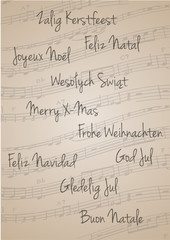 Zalig Kerstfeest
Feliz Natal
Joyeux Noël
Wesołych Świąt
Merry X-Mas
Frohe Weihnachten
Feliz Navidad
God Jul
Gledelig Jul
Buon Natale